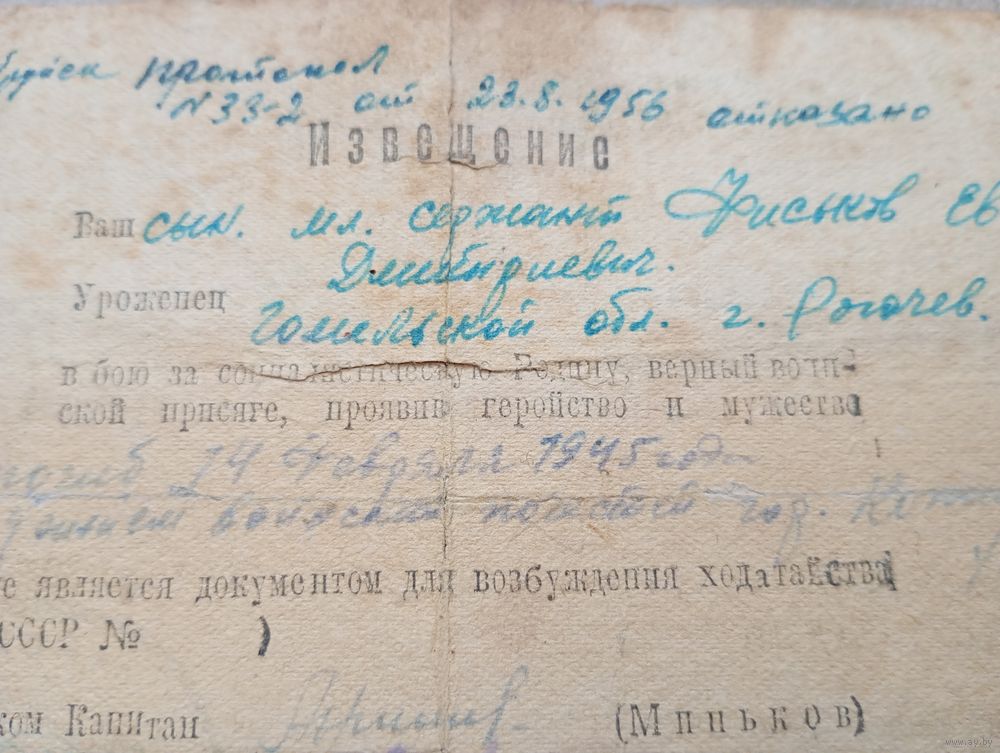 протокол
N 33-2 от 23.8.1956 отказано
Извещение
Ваш сын. мл. сержант Фиськов Ев
Дмитриевич.
Уроженец
Гомельской обл. г. Рогачев.
в бою за социалистическую Родину, верный воин-
ской присяге, проявив геройство и мужество
погиб 14 февраля 1945 года
гор.
е является документом для возбуждения ходатайства
СССР №        )
ком Капитан (Миньков)
www.ay.by